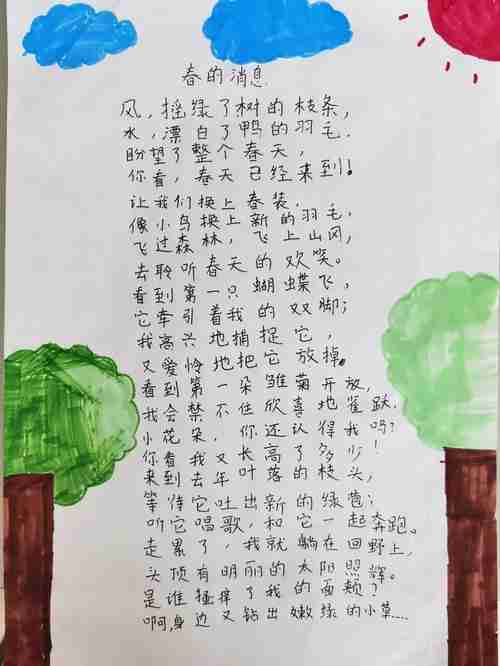 春的消息
风,摇绿了树的枝条,
水,漂白了鸭的羽毛,
盼望了整个春天,
你看,春天已经来到!
让我们换上春装,
像小鸟换上新的羽毛,
飞过森林,飞上山冈,
去聆听春天的欢笑。
看到第一只蝴蝶飞,
它牵引着我的双脚;
我高兴地捕捉它,
又爱怜地把它放掉。
看到第一朵雏菊开放,
我会禁不住欣喜地雀跃.
小花朵,你还认得我吗?
你看我又长高了多少!
来到去年叶落的枝头,
等待它吐出新的绿苞;
听它唱歌,和它一起奔跑。
走累了,我就躺在田野上,
头顶有明丽的太阳照辉。
是谁搔痒了我的面颊?
啊,身边又钻出嫩绿的小草……